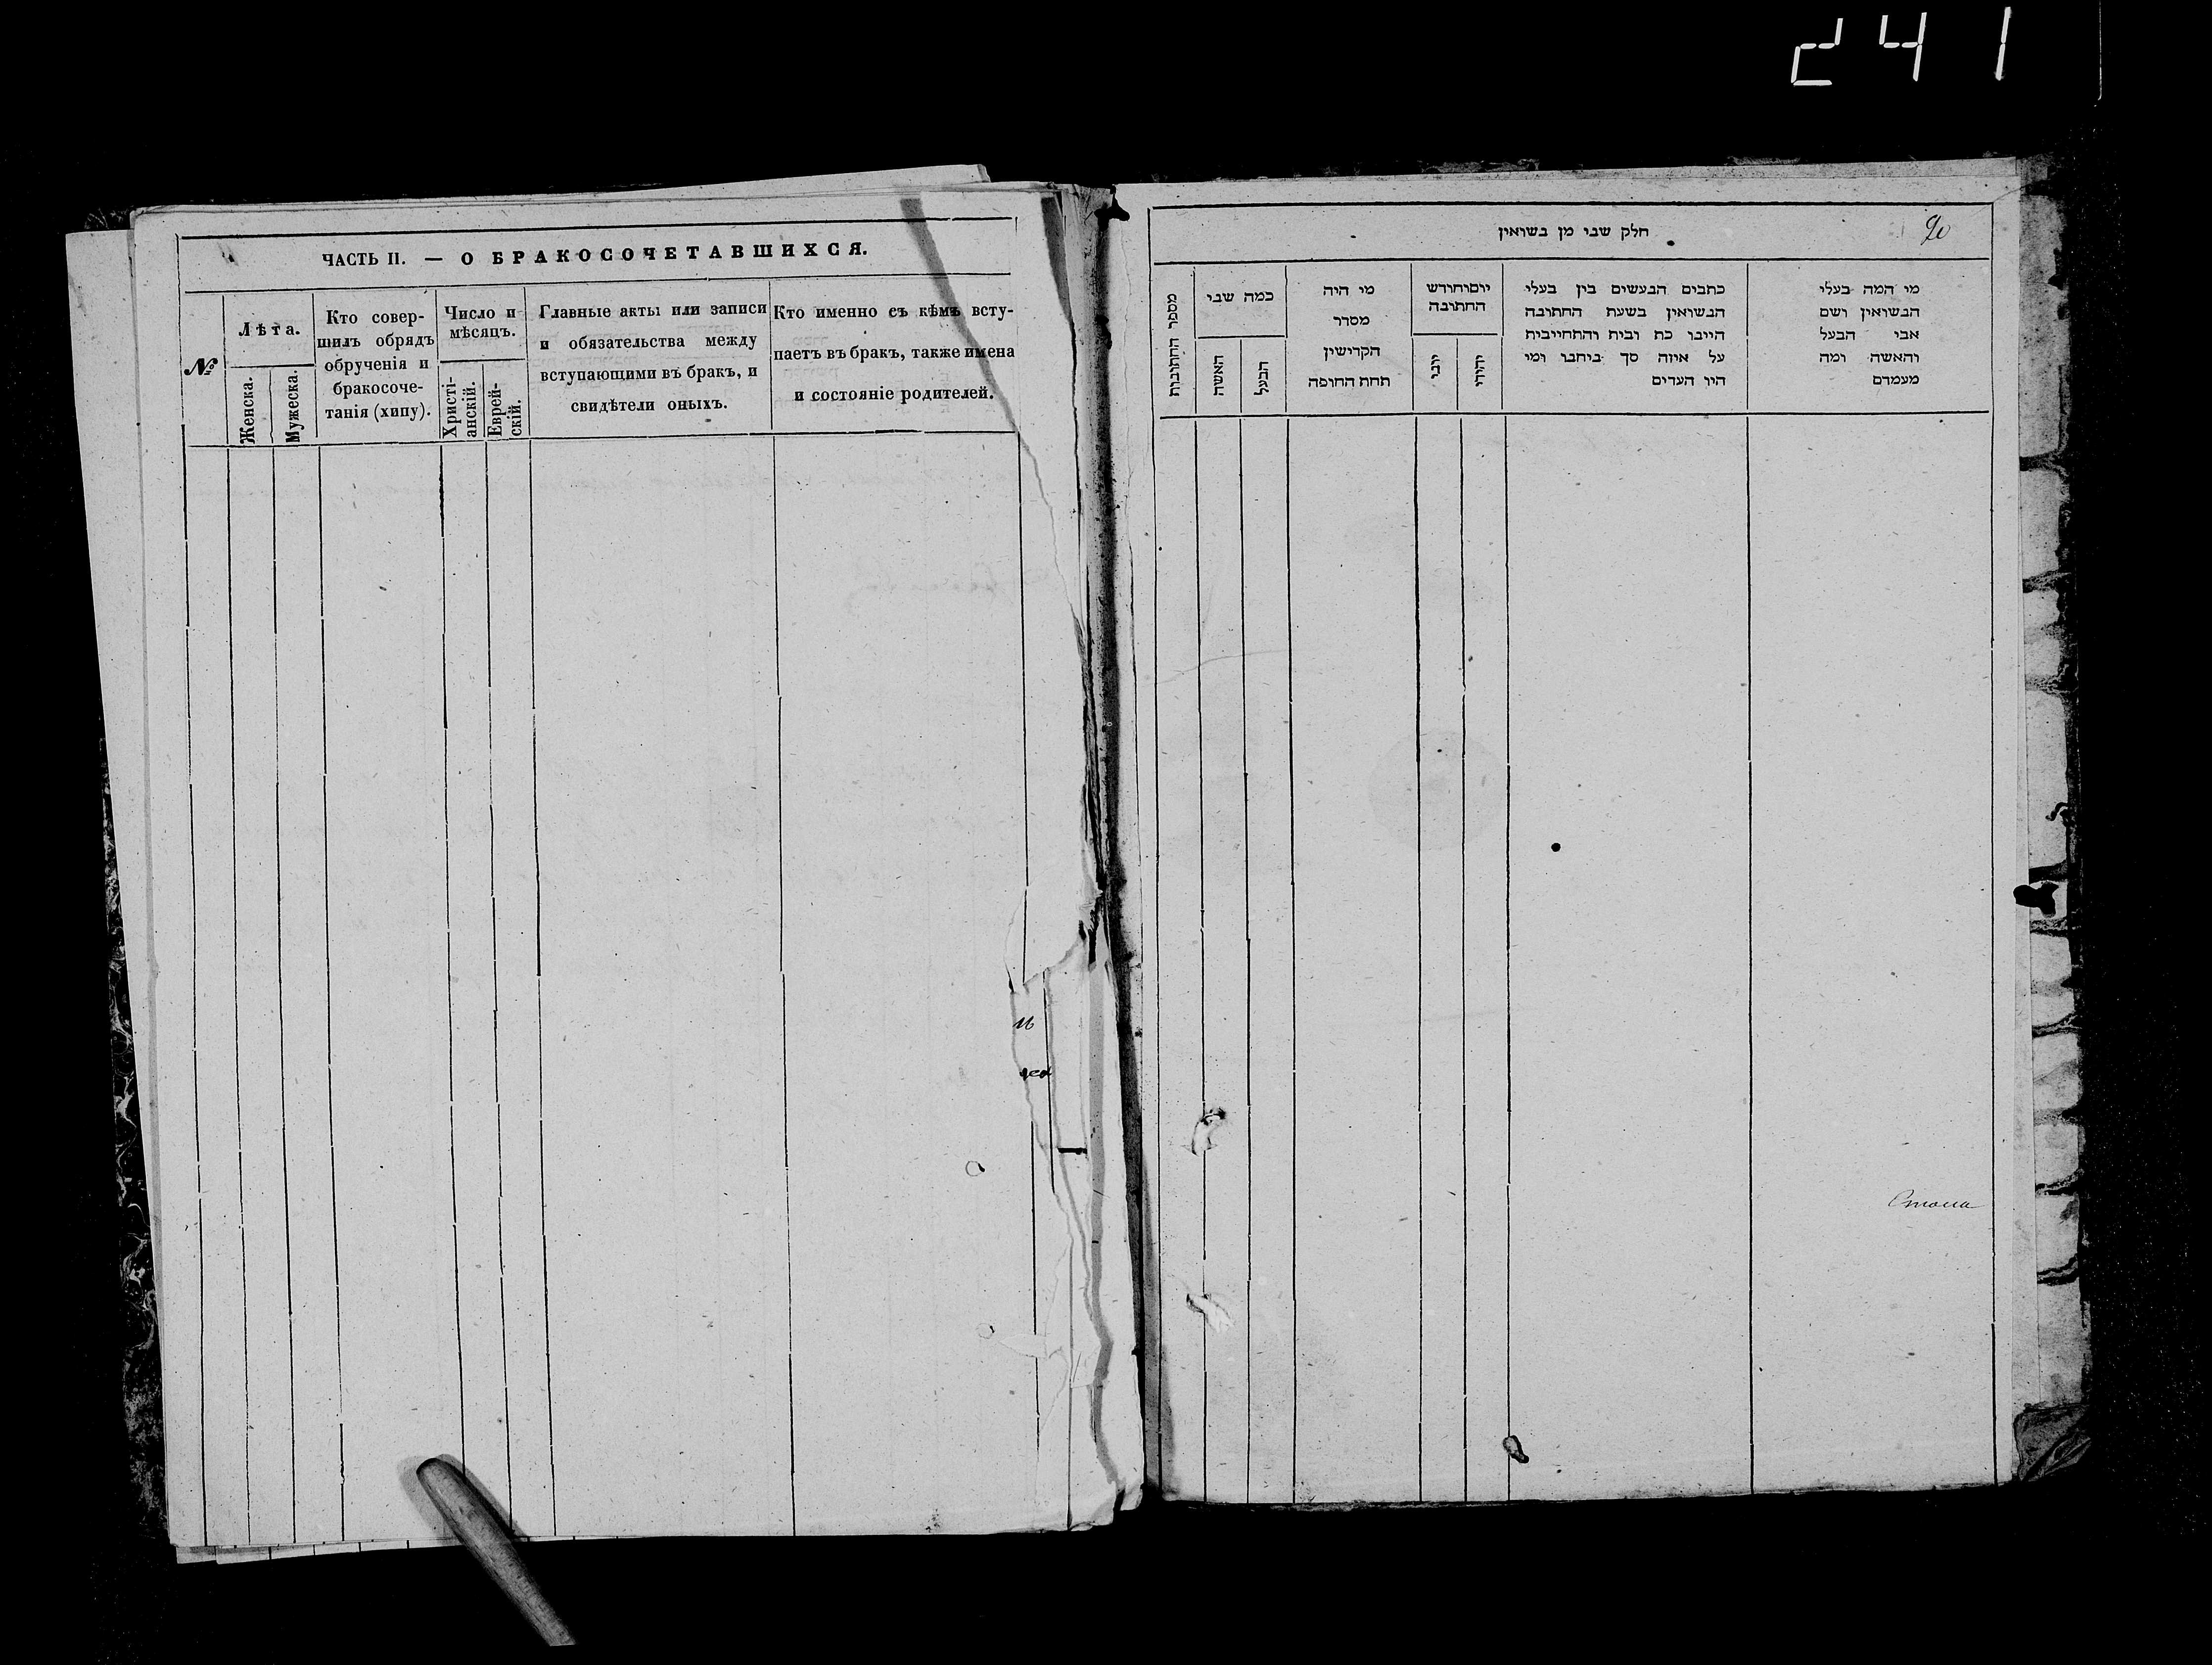 241
ЧАСТЬ II. — О БРАКОСОЧЕТАВШИХСЯ.
№
Лѣта.
Женска.
Мужеска.
Кто совер-
шилъ обрядъ
обрученія и
бракосоче-
танія (хипу).
Число и
мѣсяцъ.
Христі-
анскій.
Еврей-
скій.
Главные акты или записи
и обязательства между
вступающими въ бракъ, и
свидѣтели оныхъ.
Кто именно съ кѣмъ всту-
паетъ въ бракъ, также имена
и состояніе родителей.
20
חלק שני מן נשואין
מי המה בעלי
הנשואין ושם
אבי הבעל
והאשה ומה
מעמדם
כתבים הנעשים בין בעלי
הנשואין בשעת החתונה
היינו כת ובית והתחייבית
על איזה סך ניתנו ומי
היו העדים
יום וחודש
החתונה
יהודי
יוני
מי היה
מסדר
הקדישין
תחת החופה
כמה שני
הבעל
האשה
מספר החתונות